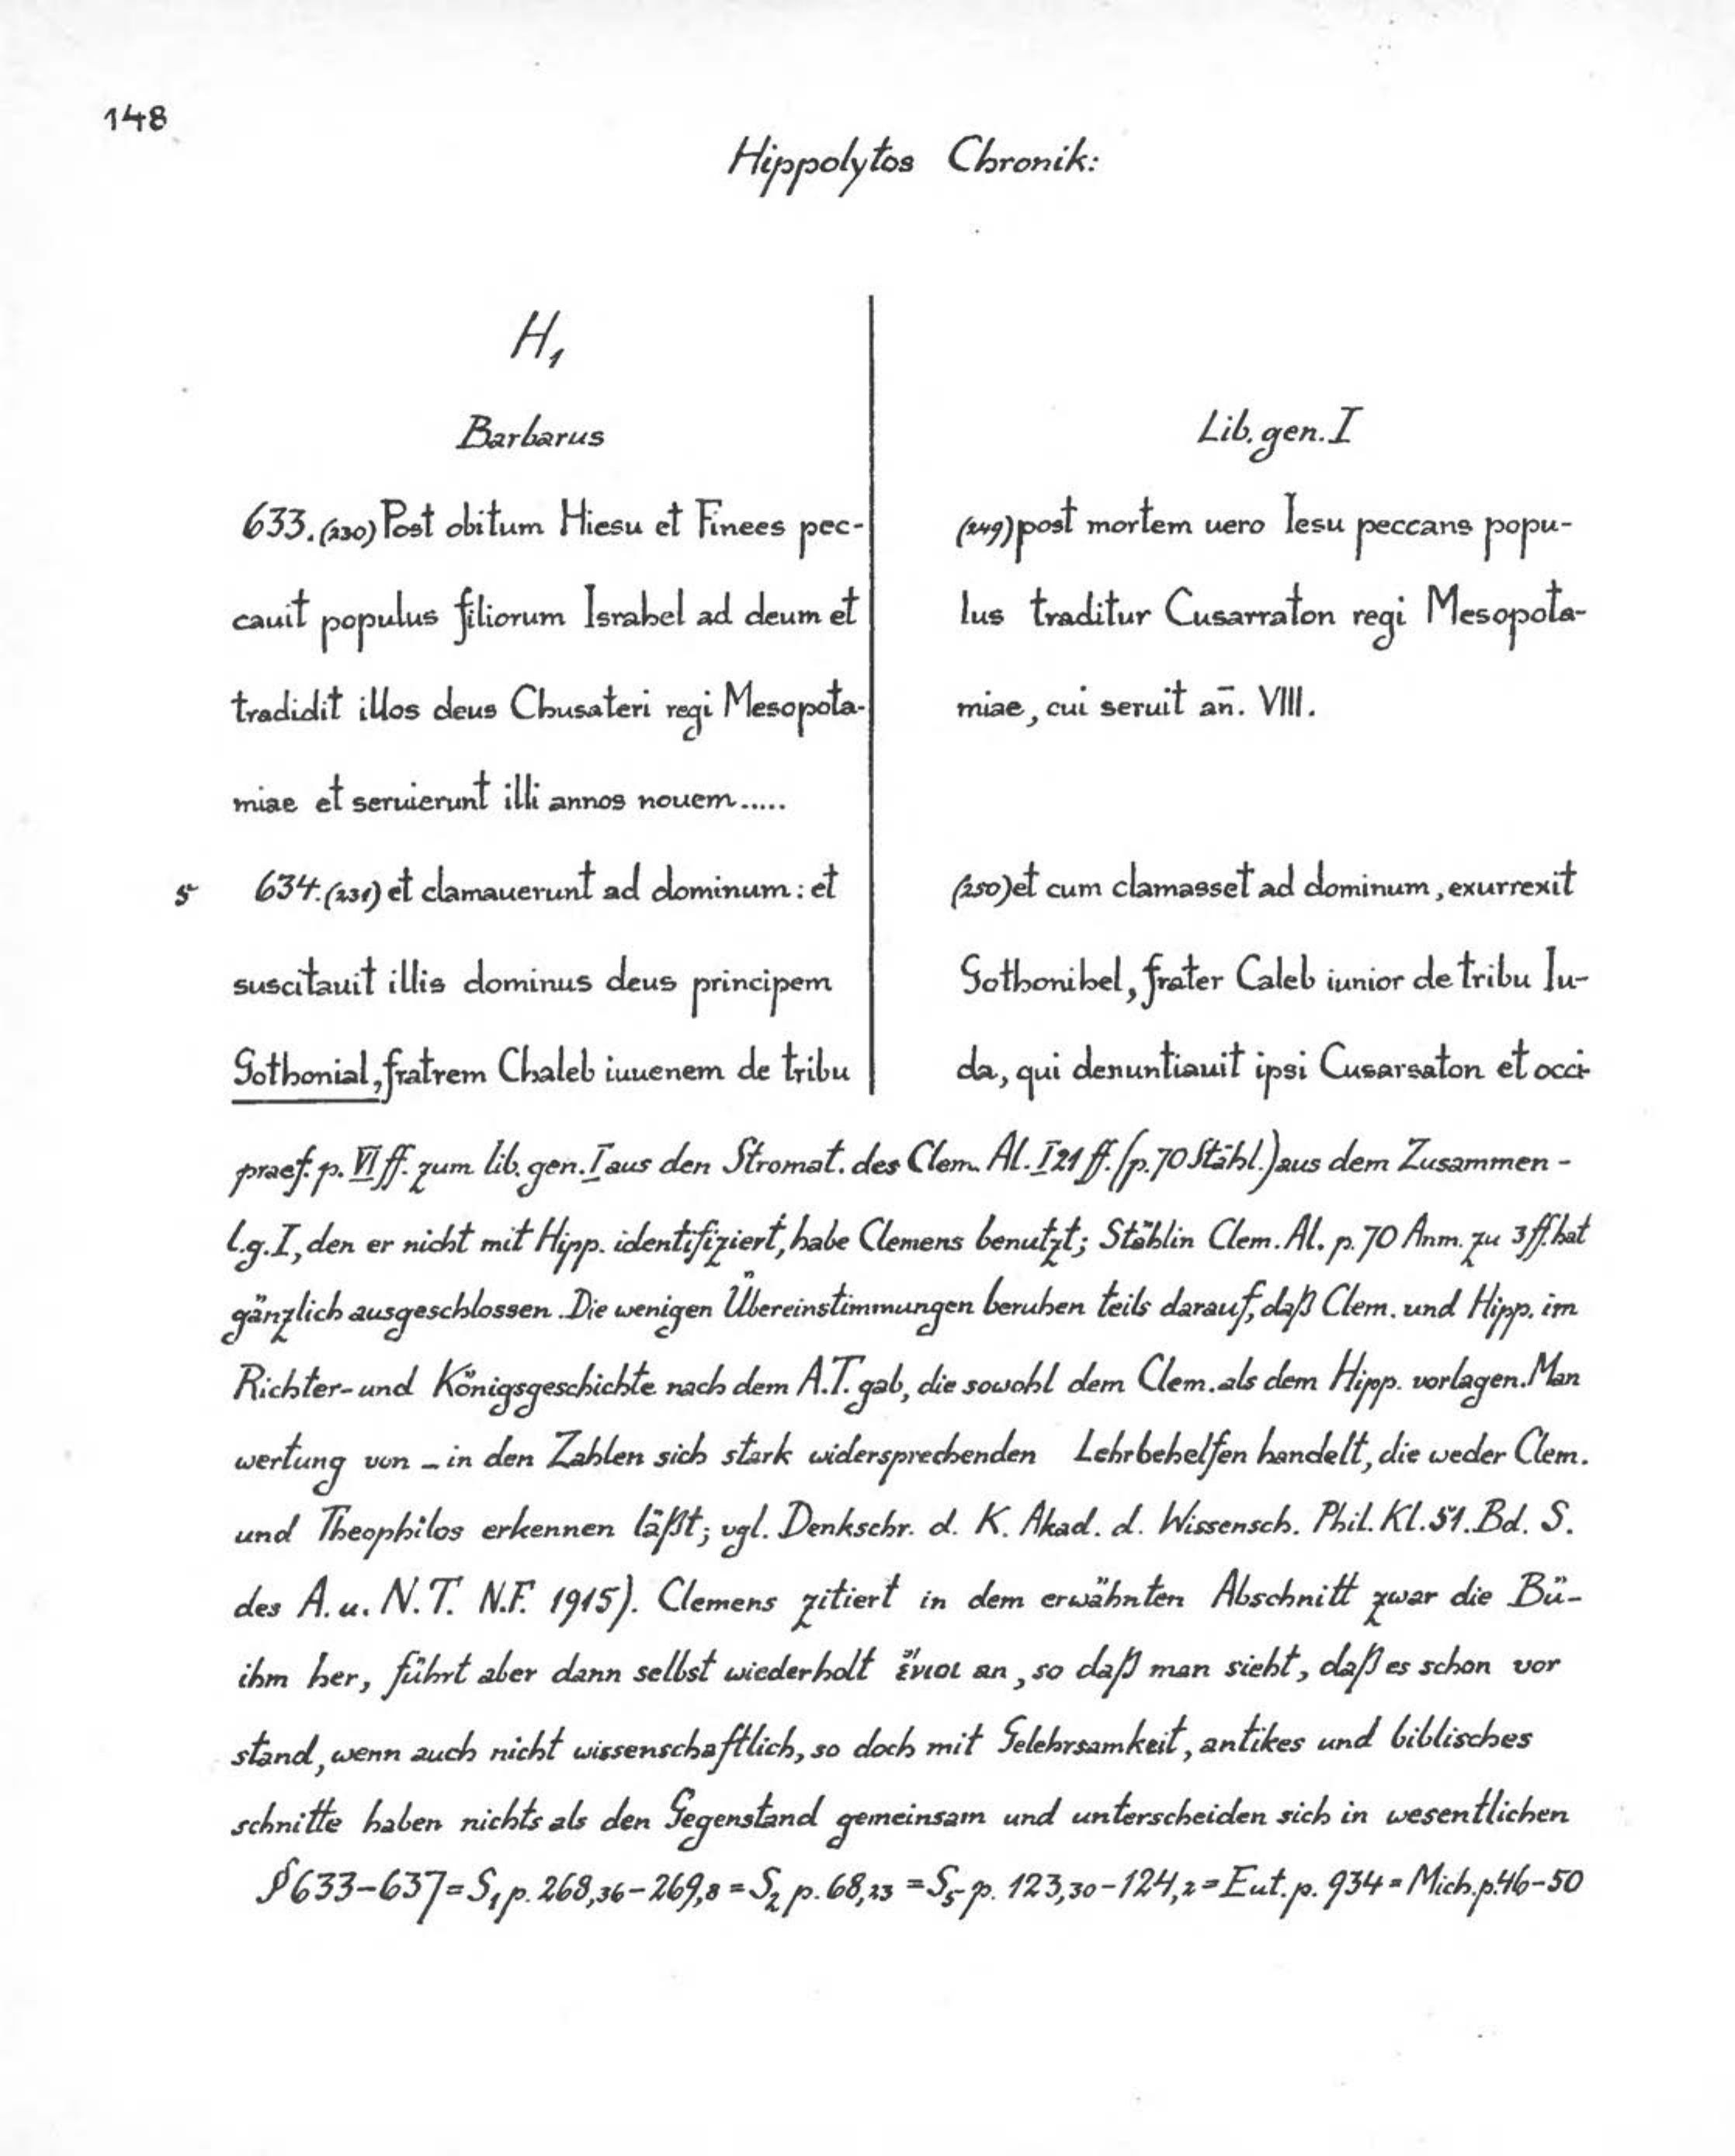 148
Hippolytos Chronik:
H₁
Barbarus
633. (230) Post obitum Hiesu et Finees pec-
cauit populus filiorum Israhel ad deum et
tradidit illos deus Chusateri regi Mesopota-
miae et seruierunt illi annos nouem.....
5 634. (231) et clamauerunt ad dominum: et
suscitauit illis dominus deus principem
Gothonial, fratrem Chaleb iuuenem de tribu
Lib. gen. I
(249) post mortem uero Iesu peccans popu-
lus traditur Cusarraton regi Mesopota-
miae, cui seruit an̄. VIII.
(250) et cum clamasset ad dominum, exurrexit
Gothonihel, frater Caleb iunior de tribu Iu-
da, qui denuntiauit ipsi Cusarsaton et occi-
praef. p. VI ff. zum lib. gen. I aus den Stromat. des Clem. Al. I 21 ff. (p. 70 Stähl.) aus dem Zusammen-
l.g. I, den er nicht mit Hipp. identifiziert, habe Clemens benutzt; Stählin Clem. Al. p. 70 Anm. zu 3 ff. hat
gänzlich ausgeschlossen. Die wenigen Übereinstimmungen beruhen teils darauf, daß Clem. und Hipp. im
Richter- und Königsgeschichte nach dem A.T. gab, die sowohl dem Clem. als dem Hipp. vorlagen. Man
wertung von – in den Zahlen sich stark widersprechenden Lehrbehelfen handelt, die weder Clem.
und Theophilos erkennen läßt; vgl. Denkschr. d. K. Akad. d. Wissensch. Phil. Kl. 51. Bd. S.
des A. u. N.T. N.F. 1915). Clemens zitiert in dem erwähnten Abschnitt zwar die Bü-
ihm her, führt aber dann selbst wiederholt ἔνιοι an, so daß man sieht, daß es schon vor
stand, wenn auch nicht wissenschaftlich, so doch mit Gelehrsamkeit, antikes und biblisches
schnitte haben nichts als den Gegenstand gemeinsam und unterscheiden sich in wesentlichen
§ 633–637 = S₁ p. 268,36–269,8 = S₂ p. 68,23 = S₅ p. 123,30–124,2 = Eut. p. 934 = Mich. p. 46–50